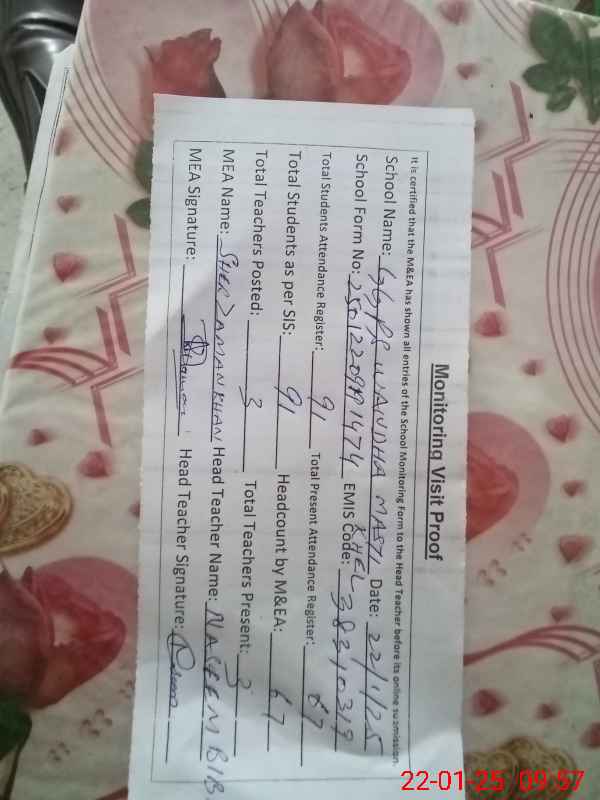 Monitoring Visit Proof
It is certified that the M&EA has shown all entries of the School Monitoring Form to the Head Teacher before its online submission.
School Name: GGPS WANDHA MASTI KHEL Date: 22/1/25
School Form No: EMIS Code: 38310319
Total Students Attendance Register: 91 Total Present Attendance Register: 67
Total Students as per SIS: 91 Headcount by M&EA: 67
Total Teachers Posted: 3 Total Teachers Present: 3
MEA Name: SHER ZAMAN KHAN Head Teacher Name: NASEEM BIB
MEA Signature: Head Teacher Signature:
22-01-25 09:57